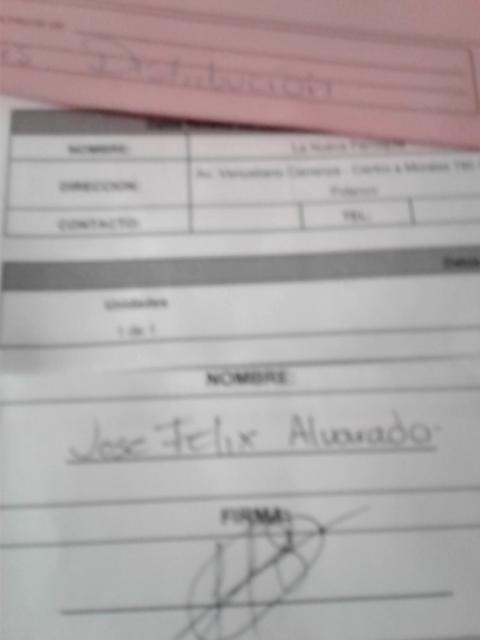 Distribución
NOMBRE: La Nueva
DIRECCION: Av. Venustiano Carranza - Centro a Morales 790
Polanco
CONTACTO: TEL.:
Datos
Unidades
1 de 1
NOMBRE:
Jose Felix Alvarado
FIRMA: